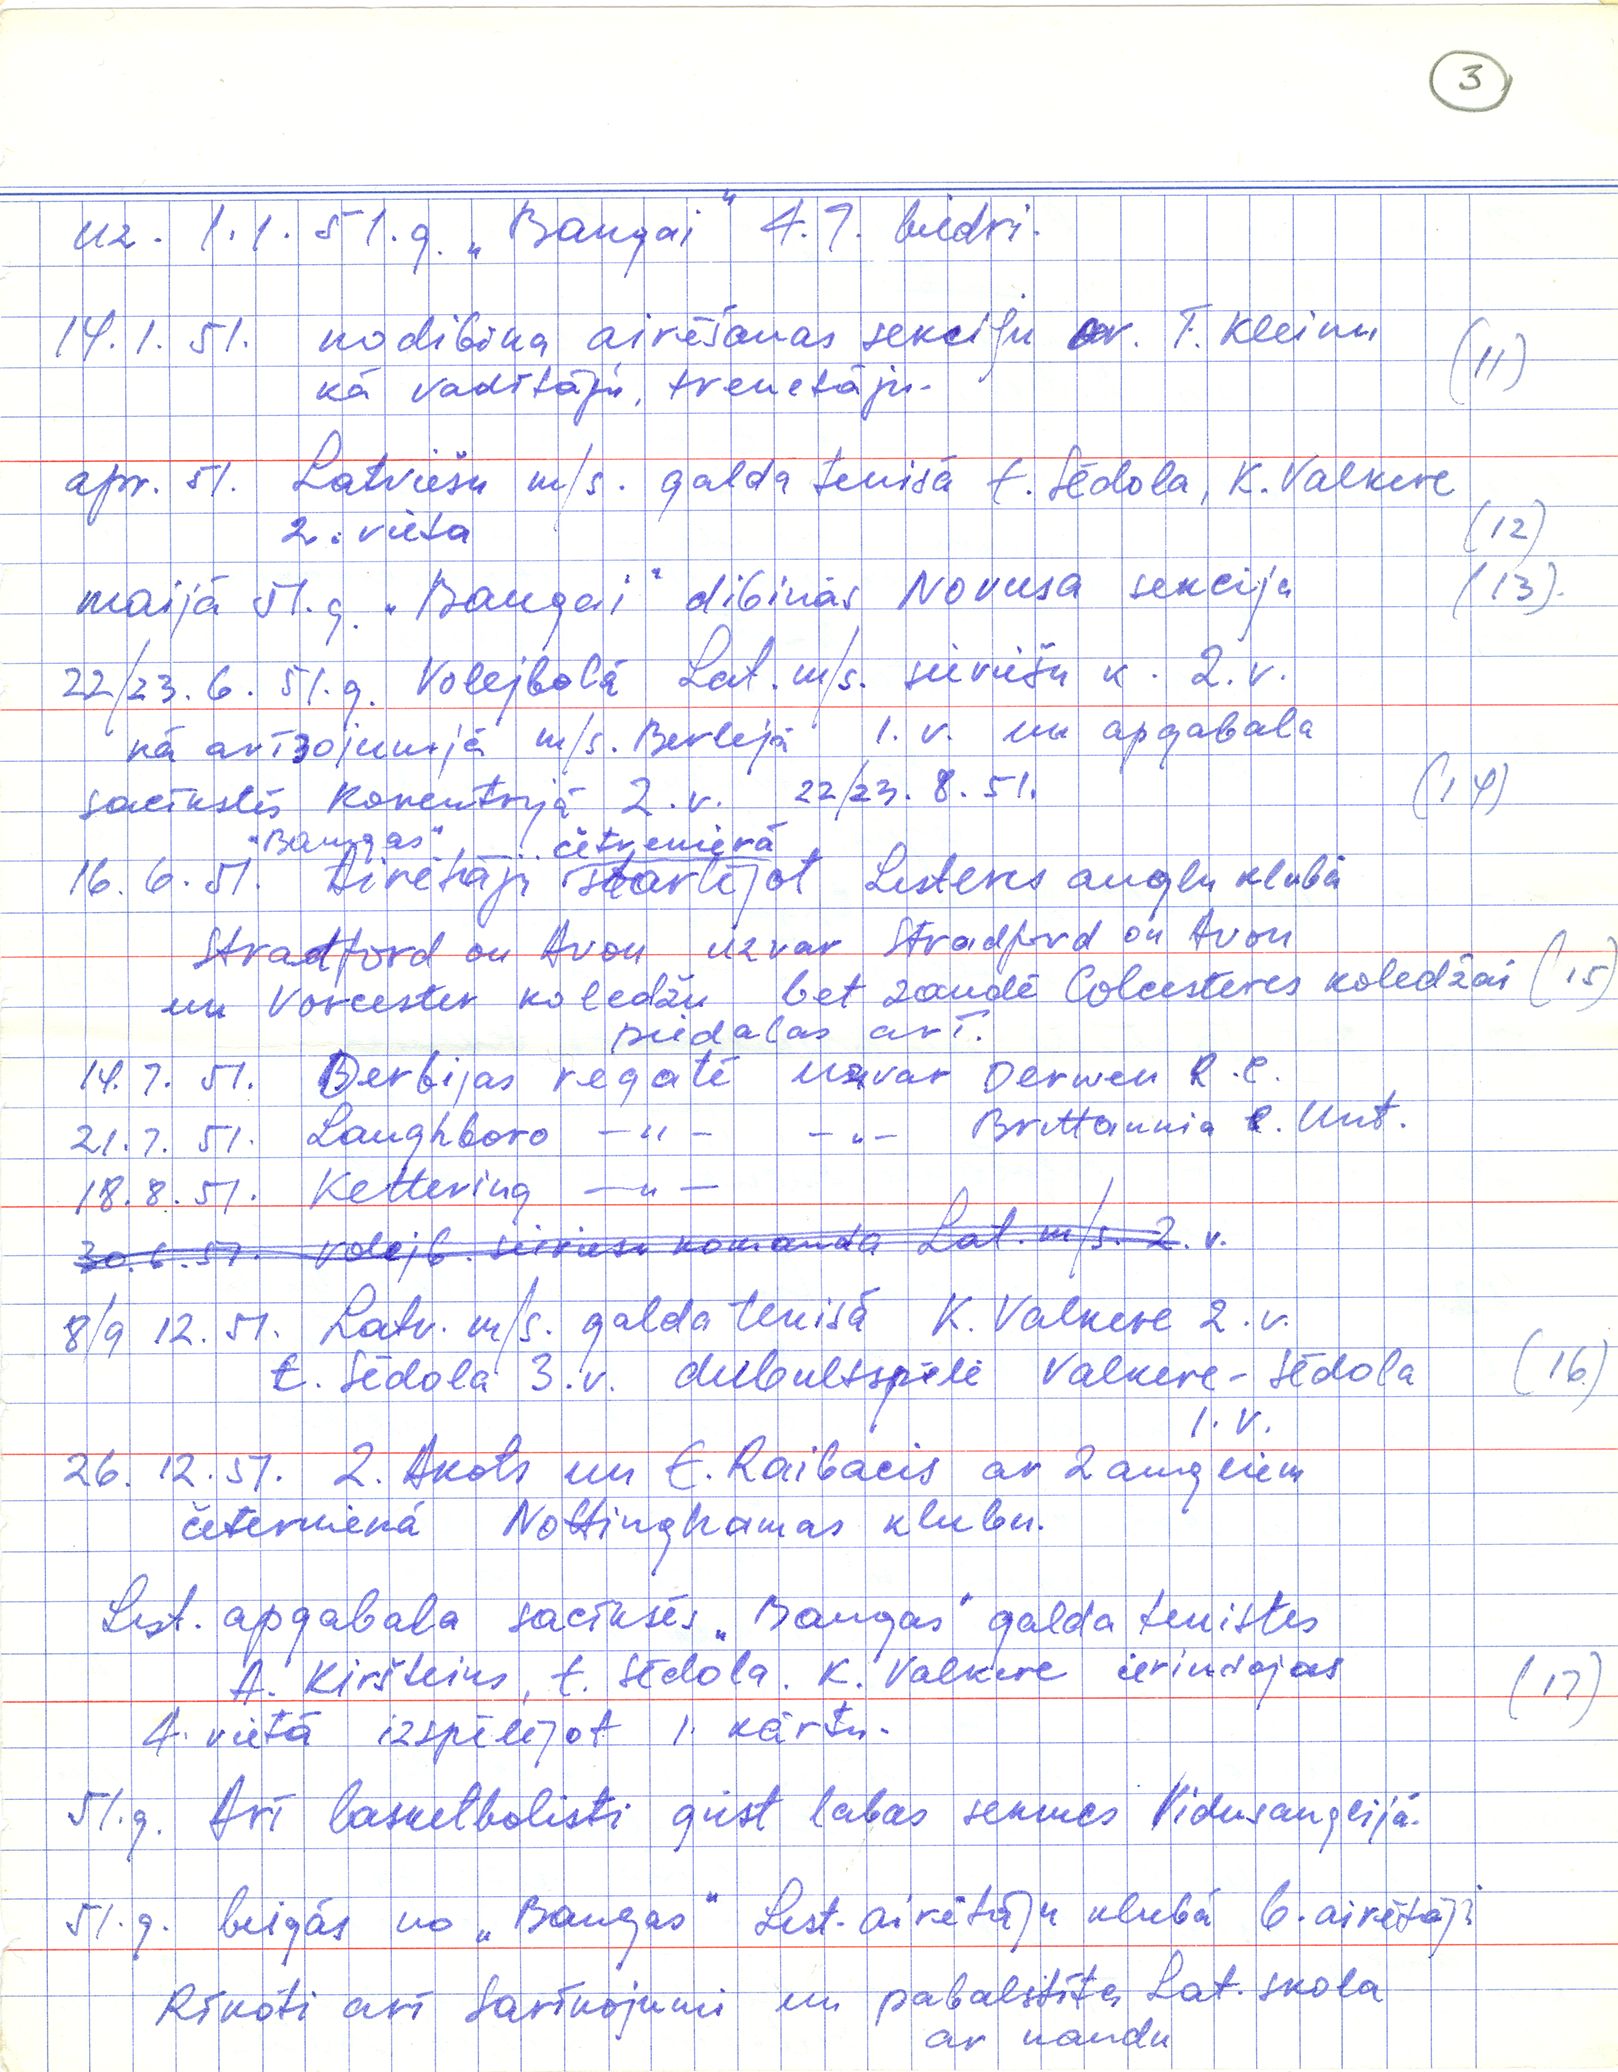 3
uz. 1.1.51.g. „Bangai" 47. biedri.
14.1.51. nodibina airēšanas sekciju ar. F. Kleinu (11)
kā vadītāju, trenetāju.
apr. 51. Latviešu m/s. galda tenisā E. Sēdola, K. Valkere
2. vieta (12)
maijā 51.g. „Bangai" dibinās Novusa sekcija (13).
22/23.6.51.g. Volejbolā Lat. m/s. sieviešu k. 2.v.
kā arī m/s. Berlejā 1.v. un apgabala
sacīkstēs Koventrijā 2.v. 22/23.8.51. (14)
"Bangas" četrvienērā
16.6.51. Airētāji startējot Lesteres angļu klubā
Stradford on Avon uzvar Stradford on Avon
un Vorcester koledžu bet zaudē Colcesteres koledžai (15)
piedalas arī.
14.7.51. Derbijas regatē uzvar Derwen R.C.
21.7.51. Laughboro –"– –"– Brittannia C. Unt.
18.8.51. Kettering –"–
30.6.51. volejb. sieviešu komanda Lat. m/s. 2.v.
8/9 12.51. Latv. m/s. galda tenisā K. Valkere 2.v.
E. Sēdola 3.v. dubultspēlē Valkere - Sēdola (16)
1.v.
26.12.51. Z. Akots un E. Raibacis ar 2 angļiem
četervienā Nottinghamas klubu.
Lest. apgabala sacīksēs „Bangas" galda tenistes
A. Kiršteins, E. Sēdola. K. Valkere ierindojas (17)
4. vietā izspēlējot 1. kārtu.
51.g. Arī basketbolisti gūst labas sekmes Vidusanglijā.
51.g. beigās no „Bangas" Lest. airētāju klubā 6. airētāji
Rīkoti arī Sarīkojumi un pabalstīta Lat. skola
ar naudu